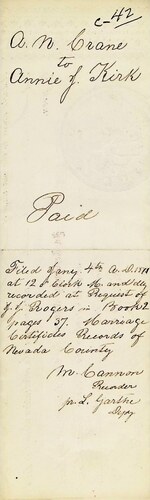 C-42
A. N. Crane
to
Annie J. Kirk
Paid
Filed Jany. 4th A.D. 1891
at 12 O'Clock M. and duly
recorded at Request of
J. J. Rogers in Book 2
pages 37. Marriage
Certificates Records of
Nevada County
M. Cannon
Recorder
pr. L. Garthe
Depy